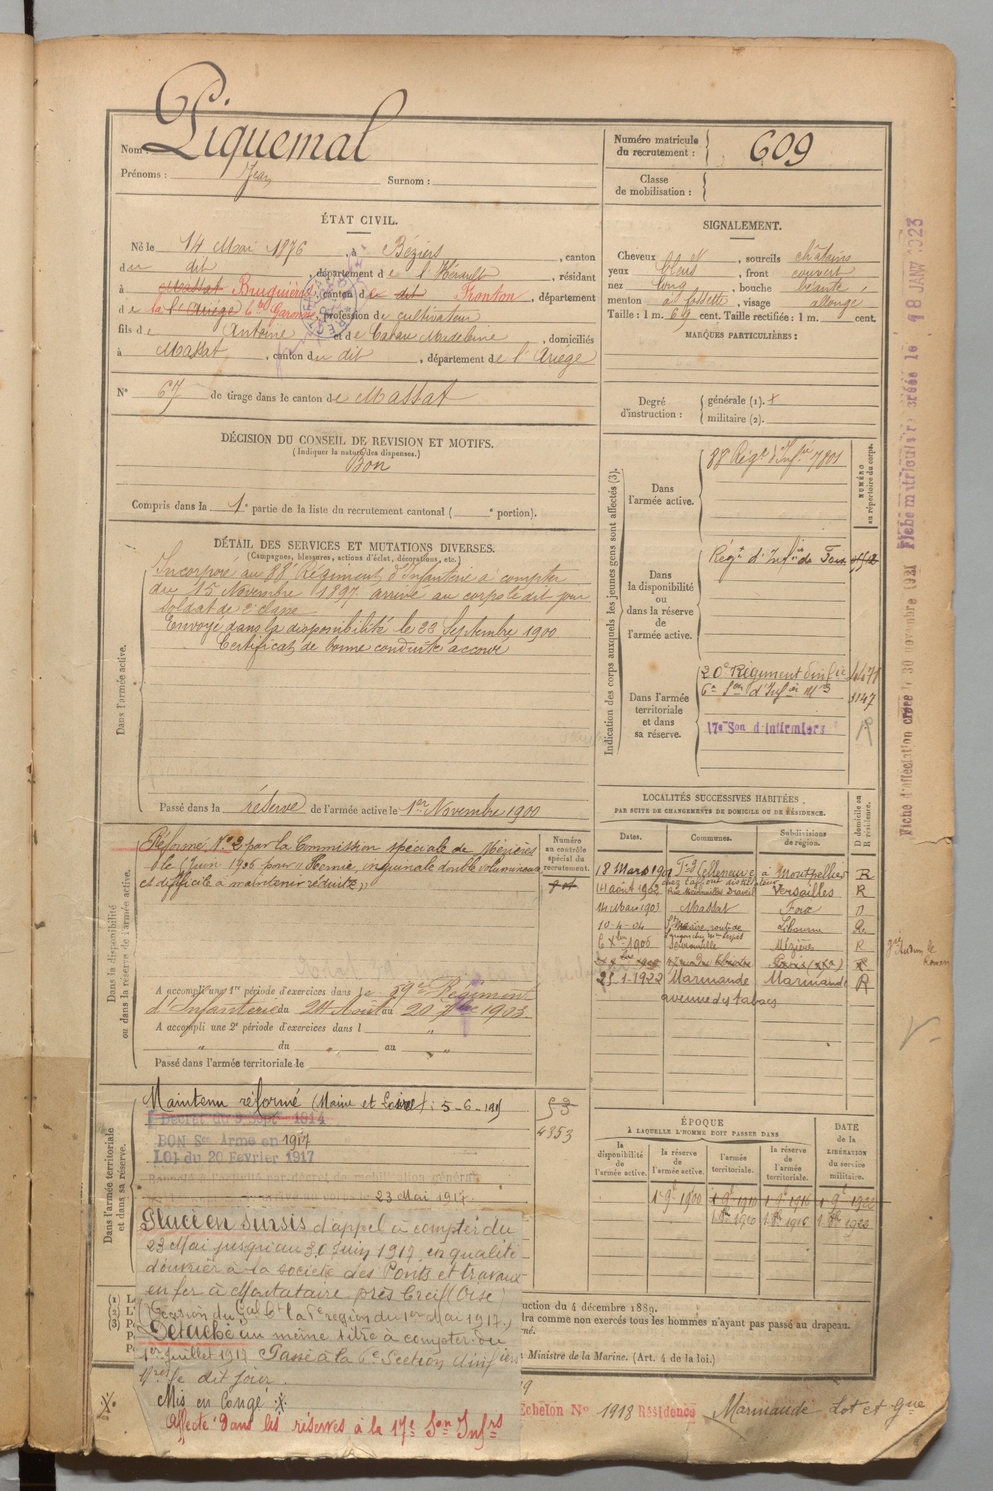 Nom : Piquemal
Prénoms : Jean Surnom :
Numéro matricule du recrutement : 609
Classe de mobilisation :
ÉTAT CIVIL.
Né le 14 Mai 1876, à Béziers, canton
du dit, département de l'Hérault, résidant
à Massat Bruguières, canton de dit Fronton, département
de la l'Ariège Hte Garonne, profession de cultivateur
fils de Antoine et de Cabau Madeleine, domiciliés
à Massat, canton du dit, département de l'Ariège
N° 67 de tirage dans le canton de Massat
SIGNALEMENT.
Cheveux, sourcils châtains
yeux bleus, front couvert
nez long, bouche béante,
menton à fossette, visage allongé
Taille : 1 m. 69 cent. Taille rectifiée : 1 m. cent.
MARQUES PARTICULIÈRES :
Degré d'instruction :
générale (1).
militaire (2).
DÉCISION DU CONSEIL DE REVISION ET MOTIFS.
(Indiquer la nature des dispenses.)
Bon
Compris dans la 1e partie de la liste du recrutement cantonal ( e portion).
DÉTAIL DES SERVICES ET MUTATIONS DIVERSES.
(Campagnes, blessures, actions d'éclat, décorations, etc.)
Dans l'armée active.
Incorporé au 88e Régiment d'Infanterie à compter
du 15 Novembre 1897 arrivé au corps le dit jour
soldat de 2e classe
Envoyé dans la disponibilité le 22 Septembre 1900
Certificat de bonne conduite accordé
Passé dans la réserve de l'armée active le 1er Novembre 1900
Indication des corps auxquels les jeunes gens sont affectés (3).
NUMÉRO au répertoire du corps.
Dans l'armée active.
88e Régt d'Infrie 7801
Dans la disponibilité ou dans la réserve de l'armée active.
Régt d'Infrie de Foix
Dans l'armée territoriale et dans sa réserve.
20e Régiment d'Infie
6e Son d'Infres Mres 3147
17e Son d'Infirmiers
Dans la disponibilité ou dans la réserve de l'armée active.
Numéro au contrôle spécial du recrutement.
Réformé N° 2 par la Commission spéciale de Mézières
le 6 Juin 1906 pour "Hernie inguinale double volumineuse
et difficile à maintenir réduite"
A accompli une 1re période d'exercices dans le 59e Régiment
d'Infanterie du 24 Août au 20 7bre 1903.
A accompli une 2e période d'exercices dans l "
" du " au "
Passé dans l'armée territoriale le
LOCALITÉS SUCCESSIVES HABITÉES.
PAR SUITE DE CHANGEMENTS DE DOMICILE OU DE RÉSIDENCE.
Dates. Communes. Subdivisions de région. D domicile ou R résidence.
18 Mars 1901 Celleneuve à Montpellier R
14 août 1902 Versailles R
14 Mars 1903 Massat Foix D
10-4-04 Libourne R
6 Xbre 1905 Mézières R
25.1.1922 Marmande Marmande R
avenue des tabacs
Dans l'armée territoriale et dans sa réserve.
Maintenu réformé (Maine et Loire) : 5-6-1915
Décret du 9 Sept 1914
BON Sce Armé en 1917
LOI du 20 Février 1917
23 Mai 1917.
53
4353
Placé en sursis d'appel à compter du
23 Mai jusqu'au 30 Juin 1917, en qualité
d'ouvrier à la société des Ponts et travaux
en fer à Montataire près Creil (Oise)
(Décision du Gal Ct la 5e région du 1er Mai 1917.)
Détaché au même titre à compter du
1er Juillet 1917 Passé à la 6e Section d'infiers
Mres le dit jour.
Mis en Congé
Affecté dans les réserves à la 17e Son Infrs
ÉPOQUE
À LAQUELLE L'HOMME DOIT PASSER DANS
la disponibilité de l'armée active.
la réserve de l'armée active.
l'armée territoriale.
la réserve de l'armée territoriale.
DATE de la LIBÉRATION du service militaire.
1 9e 1900 1 9e 1910 1 9e 1916 1 9e 1922
ction du 4 décembre 1889.
dra comme non exercés tous les hommes n'ayant pas passé au drapeau.
Ministre de la Marine. (Art. 4 de la loi.)
Echelon N° 1918 Résidence Marmande Lot et Gne
Fiche matriculaire créée le 18 JANV 1923
Fiche d'affectation créée le 30 novembre 1921